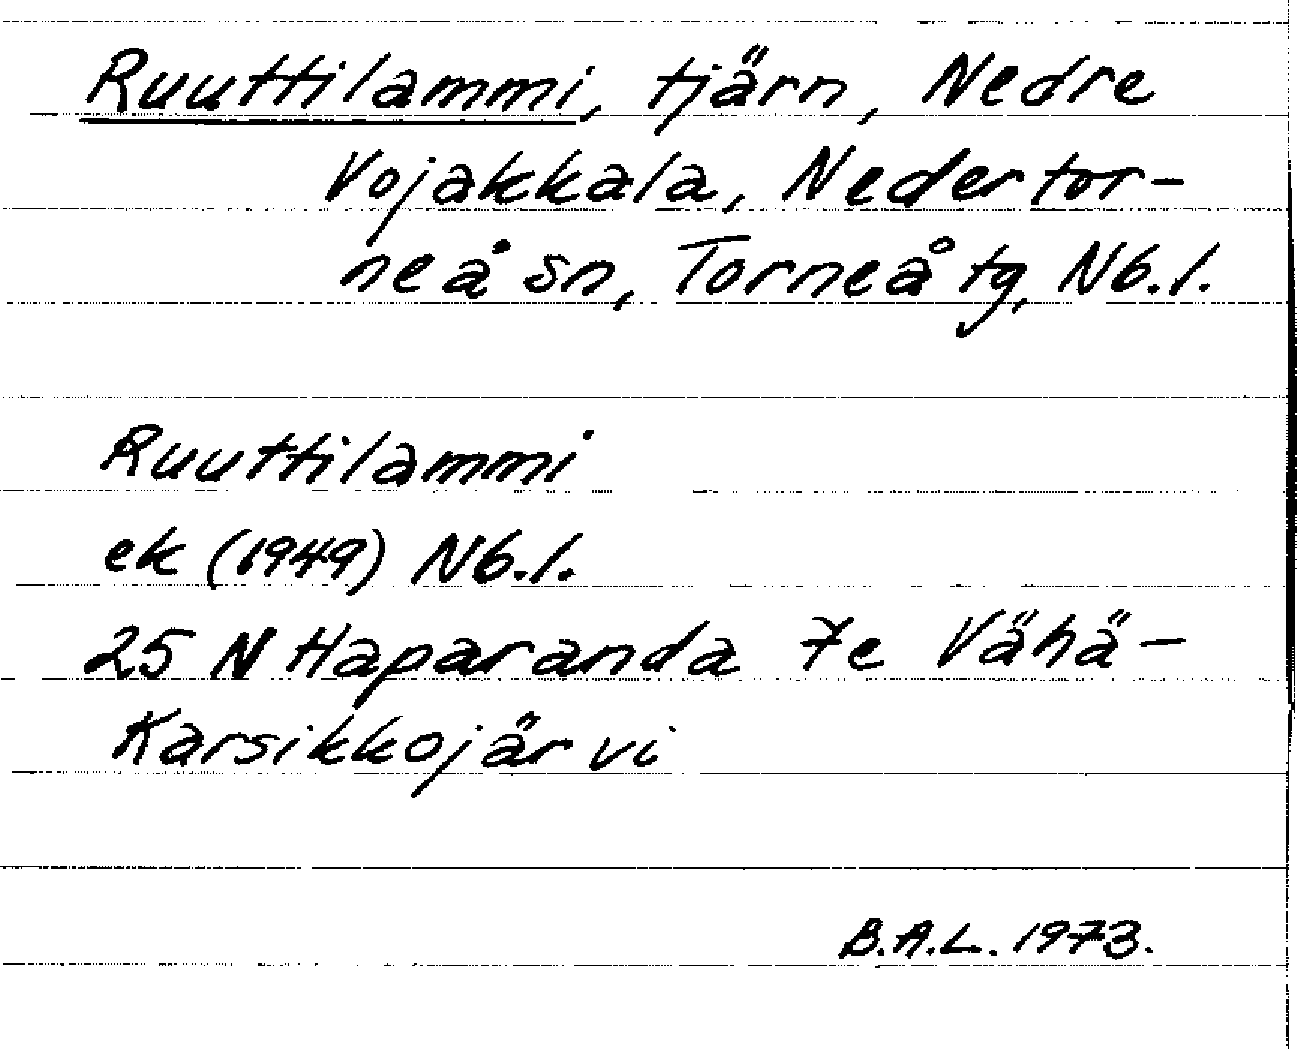 Ruuttilammi, tjärn, Nedre
Vojakkala, Nedertor-
neå sn, Torneå tg, Nb.l.
Ruuttilammi
ek (1949) Nb.l.
25 N Haparanda 7e Vähä-
Karsikkojärvi
B.A.L. 1973.